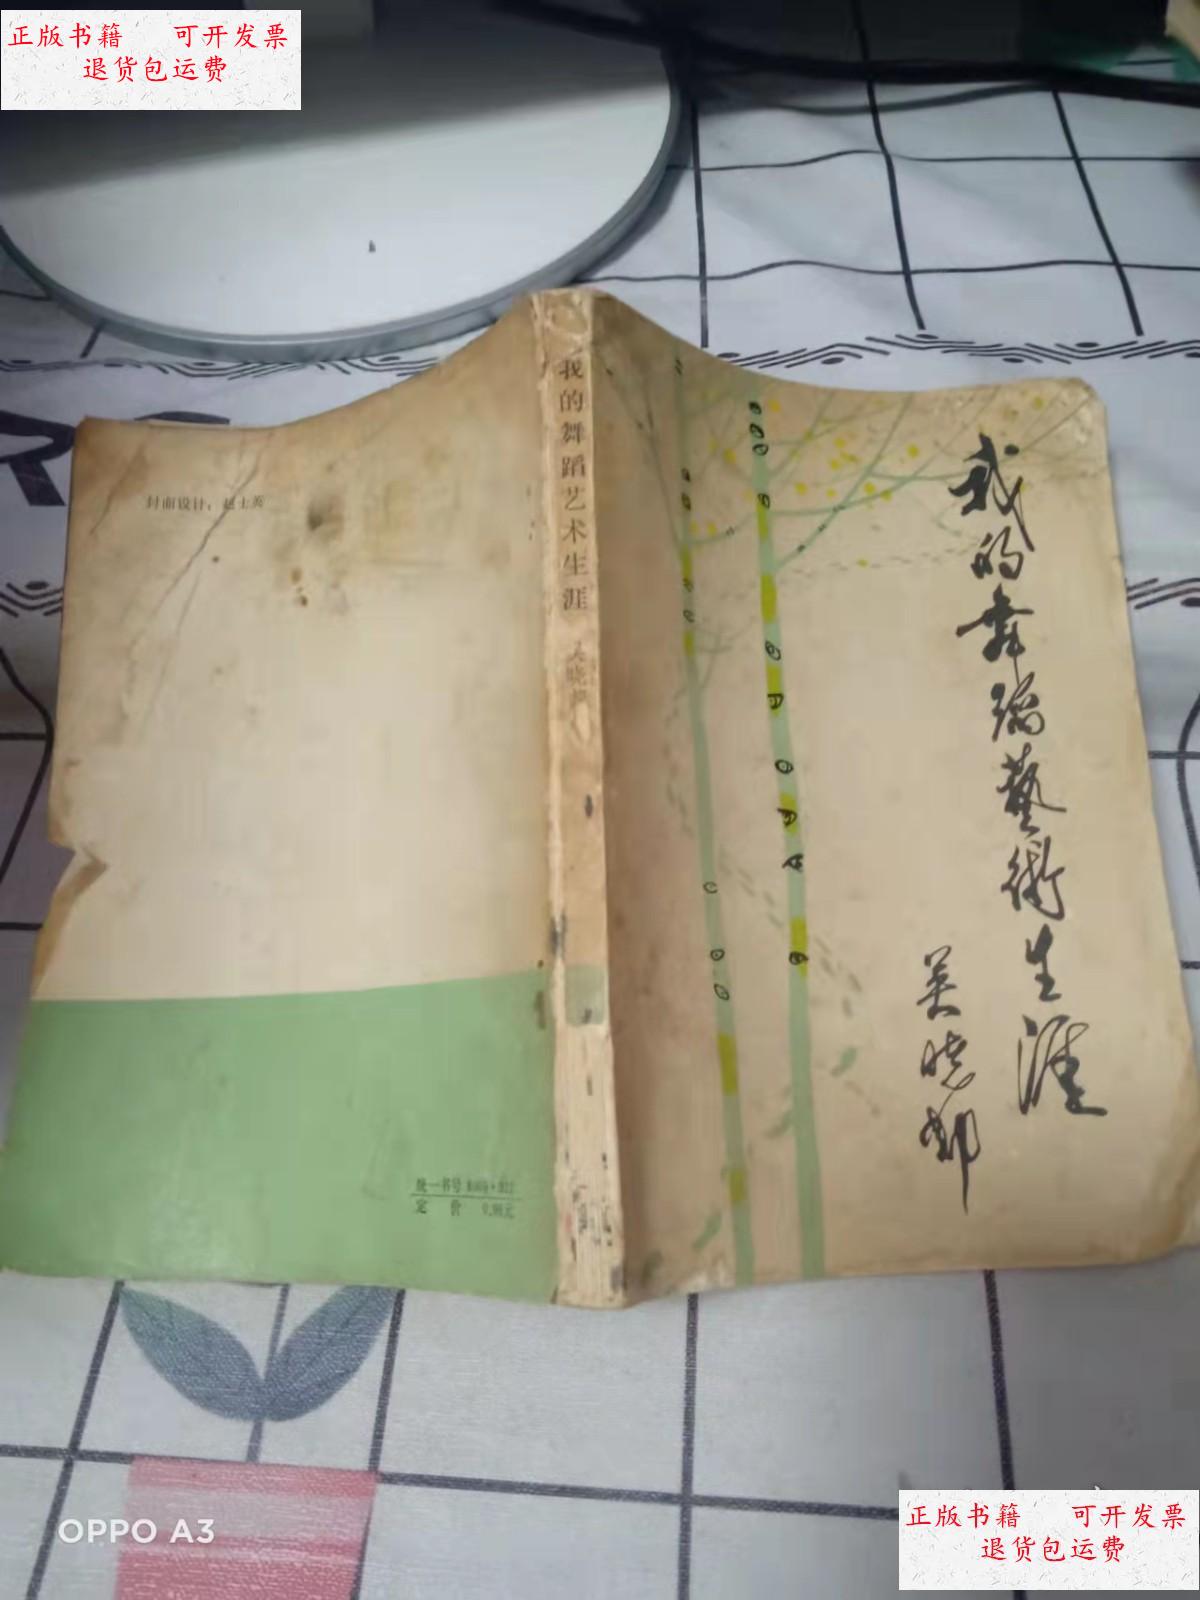 正版书籍 可开发票
退货包运费
封面设计：赵士英
我的舞蹈艺术生涯
我的舞蹈藝術生涯
吴晓邦
统一书号
定 价 0.98元
OPPO A3
正版书籍 可开发票
退货包运费